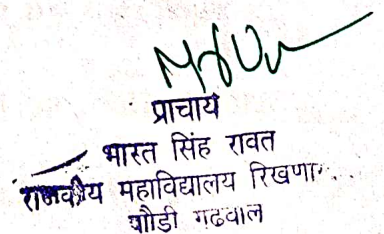 प्राचार्य
भारत सिंह रावत
राजकीय महाविद्यालय रिखणा
पौडी गढवाल